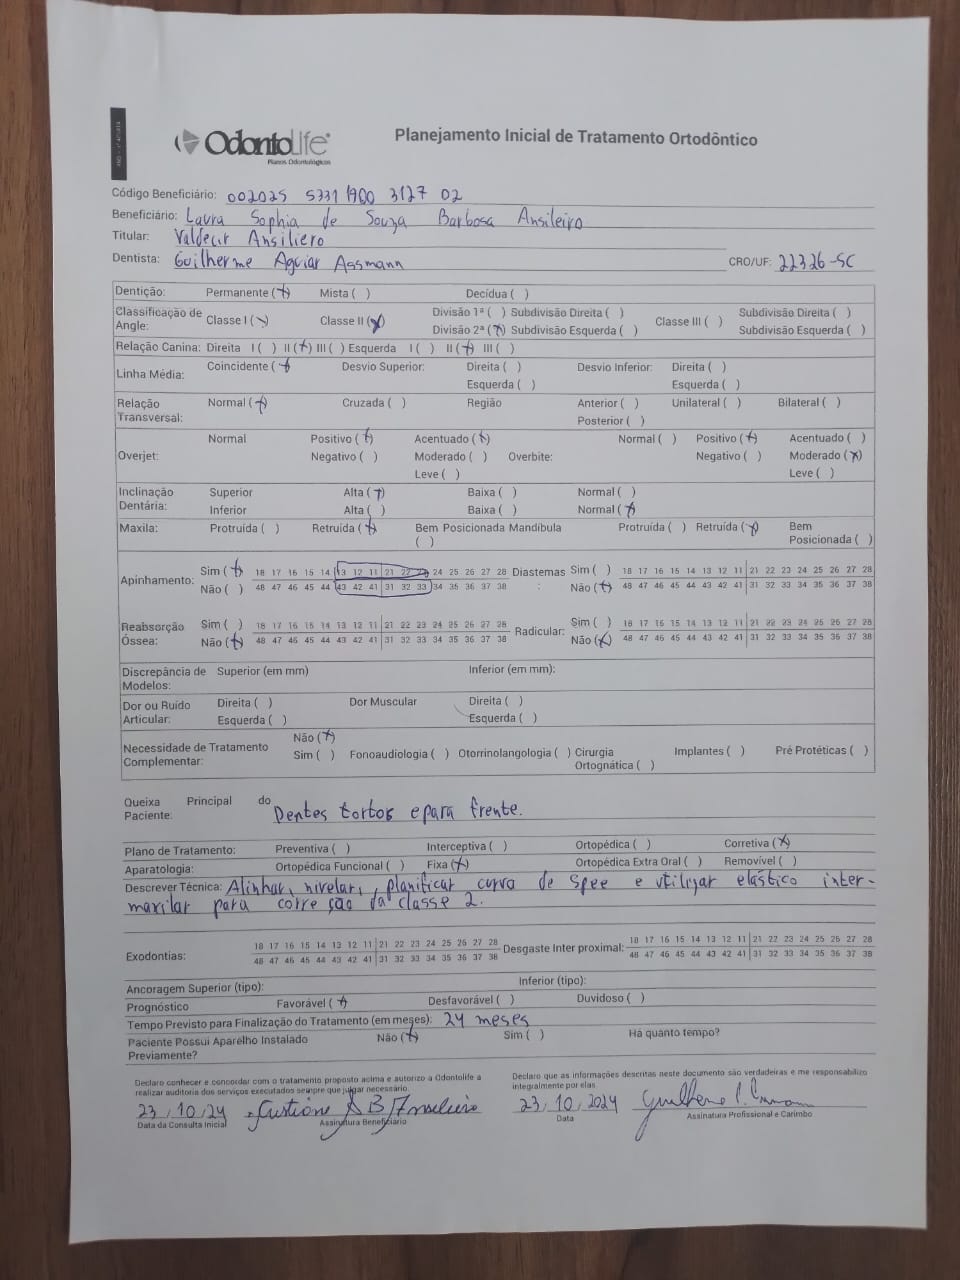 OdontoLife
Planos Odontológicos
Planejamento Inicial de Tratamento Ortodôntico
Código Beneficiário: 002025 5331 1900 3127 02
Beneficiário: Laura Sophia de Souza Barbosa Ansileiro
Titular: Valdecir Ansiliero
Dentista: Guilherme Aguiar Assmann CRO/UF: 22326-SC
Dentição: Permanente (x) Mista ( ) Decídua ( )
Classificação de Angle: Classe I (\) Classe II (x) Divisão 1ª ( ) Subdivisão Direita ( ) Classe III ( ) Subdivisão Direita ( )
Divisão 2ª (x) Subdivisão Esquerda ( ) Subdivisão Esquerda ( )
Relação Canina: Direita I ( ) II (x) III ( ) Esquerda I ( ) II (x) III ( )
Linha Média: Coincidente (x) Desvio Superior: Direita ( ) Desvio Inferior: Direita ( )
Esquerda ( ) Esquerda ( )
Relação Transversal: Normal (x) Cruzada ( ) Região Anterior ( ) Unilateral ( ) Bilateral ( )
Posterior ( )
Overjet: Normal Positivo (x) Acentuado (x) Overbite: Normal ( ) Positivo (x) Acentuado ( )
Negativo ( ) Moderado ( ) Negativo ( ) Moderado (x)
Leve ( ) Leve ( )
Inclinação Dentária: Superior Alta (x) Baixa ( ) Normal ( )
Inferior Alta ( ) Baixa ( ) Normal (x)
Maxila: Protruída ( ) Retruída (x) Bem Posicionada ( ) Mandíbula Protruída ( ) Retruída (x) Bem Posicionada ( )
Apinhamento: Sim (x) 18 17 16 15 14 13 12 11 21 22 23 24 25 26 27 28 Diastemas: Sim ( ) 18 17 16 15 14 13 12 11 21 22 23 24 25 26 27 28
Não ( ) 48 47 46 45 44 43 42 41 31 32 33 34 35 36 37 38 Não (x) 48 47 46 45 44 43 42 41 31 32 33 34 35 36 37 38
Reabsorção Óssea: Sim ( ) 18 17 16 15 14 13 12 11 21 22 23 24 25 26 27 28 Radicular: Sim ( ) 18 17 16 15 14 13 12 11 21 22 23 24 25 26 27 28
Não (x) 48 47 46 45 44 43 42 41 31 32 33 34 35 36 37 38 Não (x) 48 47 46 45 44 43 42 41 31 32 33 34 35 36 37 38
Discrepância de Modelos: Superior (em mm) Inferior (em mm):
Dor ou Ruído Articular: Direita ( ) Dor Muscular Direita ( )
Esquerda ( ) Esquerda ( )
Necessidade de Tratamento Complementar: Não (x)
Sim ( ) Fonoaudiologia ( ) Otorrinolangologia ( ) Cirurgia Ortognática ( ) Implantes ( ) Pré Protéticas ( )
Queixa Principal do Paciente: Dentes tortos e para frente.
Plano de Tratamento: Preventiva ( ) Interceptiva ( ) Ortopédica ( ) Corretiva (x)
Aparatologia: Ortopédica Funcional ( ) Fixa (x) Ortopédica Extra Oral ( ) Removível ( )
Descrever Técnica: Alinhar, nivelar, planificar curva de Spee e utilizar elástico inter-
maxilar para correção da classe 2.
Exodontias: 18 17 16 15 14 13 12 11 21 22 23 24 25 26 27 28 Desgaste Inter proximal: 18 17 16 15 14 13 12 11 21 22 23 24 25 26 27 28
48 47 46 45 44 43 42 41 31 32 33 34 35 36 37 38 48 47 46 45 44 43 42 41 31 32 33 34 35 36 37 38
Ancoragem Superior (tipo): Inferior (tipo):
Prognóstico Favorável (x) Desfavorável ( ) Duvidoso ( )
Tempo Previsto para Finalização do Tratamento (em meses): 24 meses
Paciente Possui Aparelho Instalado Previamente? Não (x) Sim ( ) Há quanto tempo?
Declaro conhecer e concordar com o tratamento proposto acima e autorizo a Odontolife a
realizar auditoria dos serviços executados sempre que julgar necessário.
Declaro que as informações descritas neste documento são verdadeiras e me responsabilizo
integralmente por elas.
23/10/24 23/10/2024
Data da Consulta Inicial Assinatura Beneficiário Data Assinatura Profissional e Carimbo